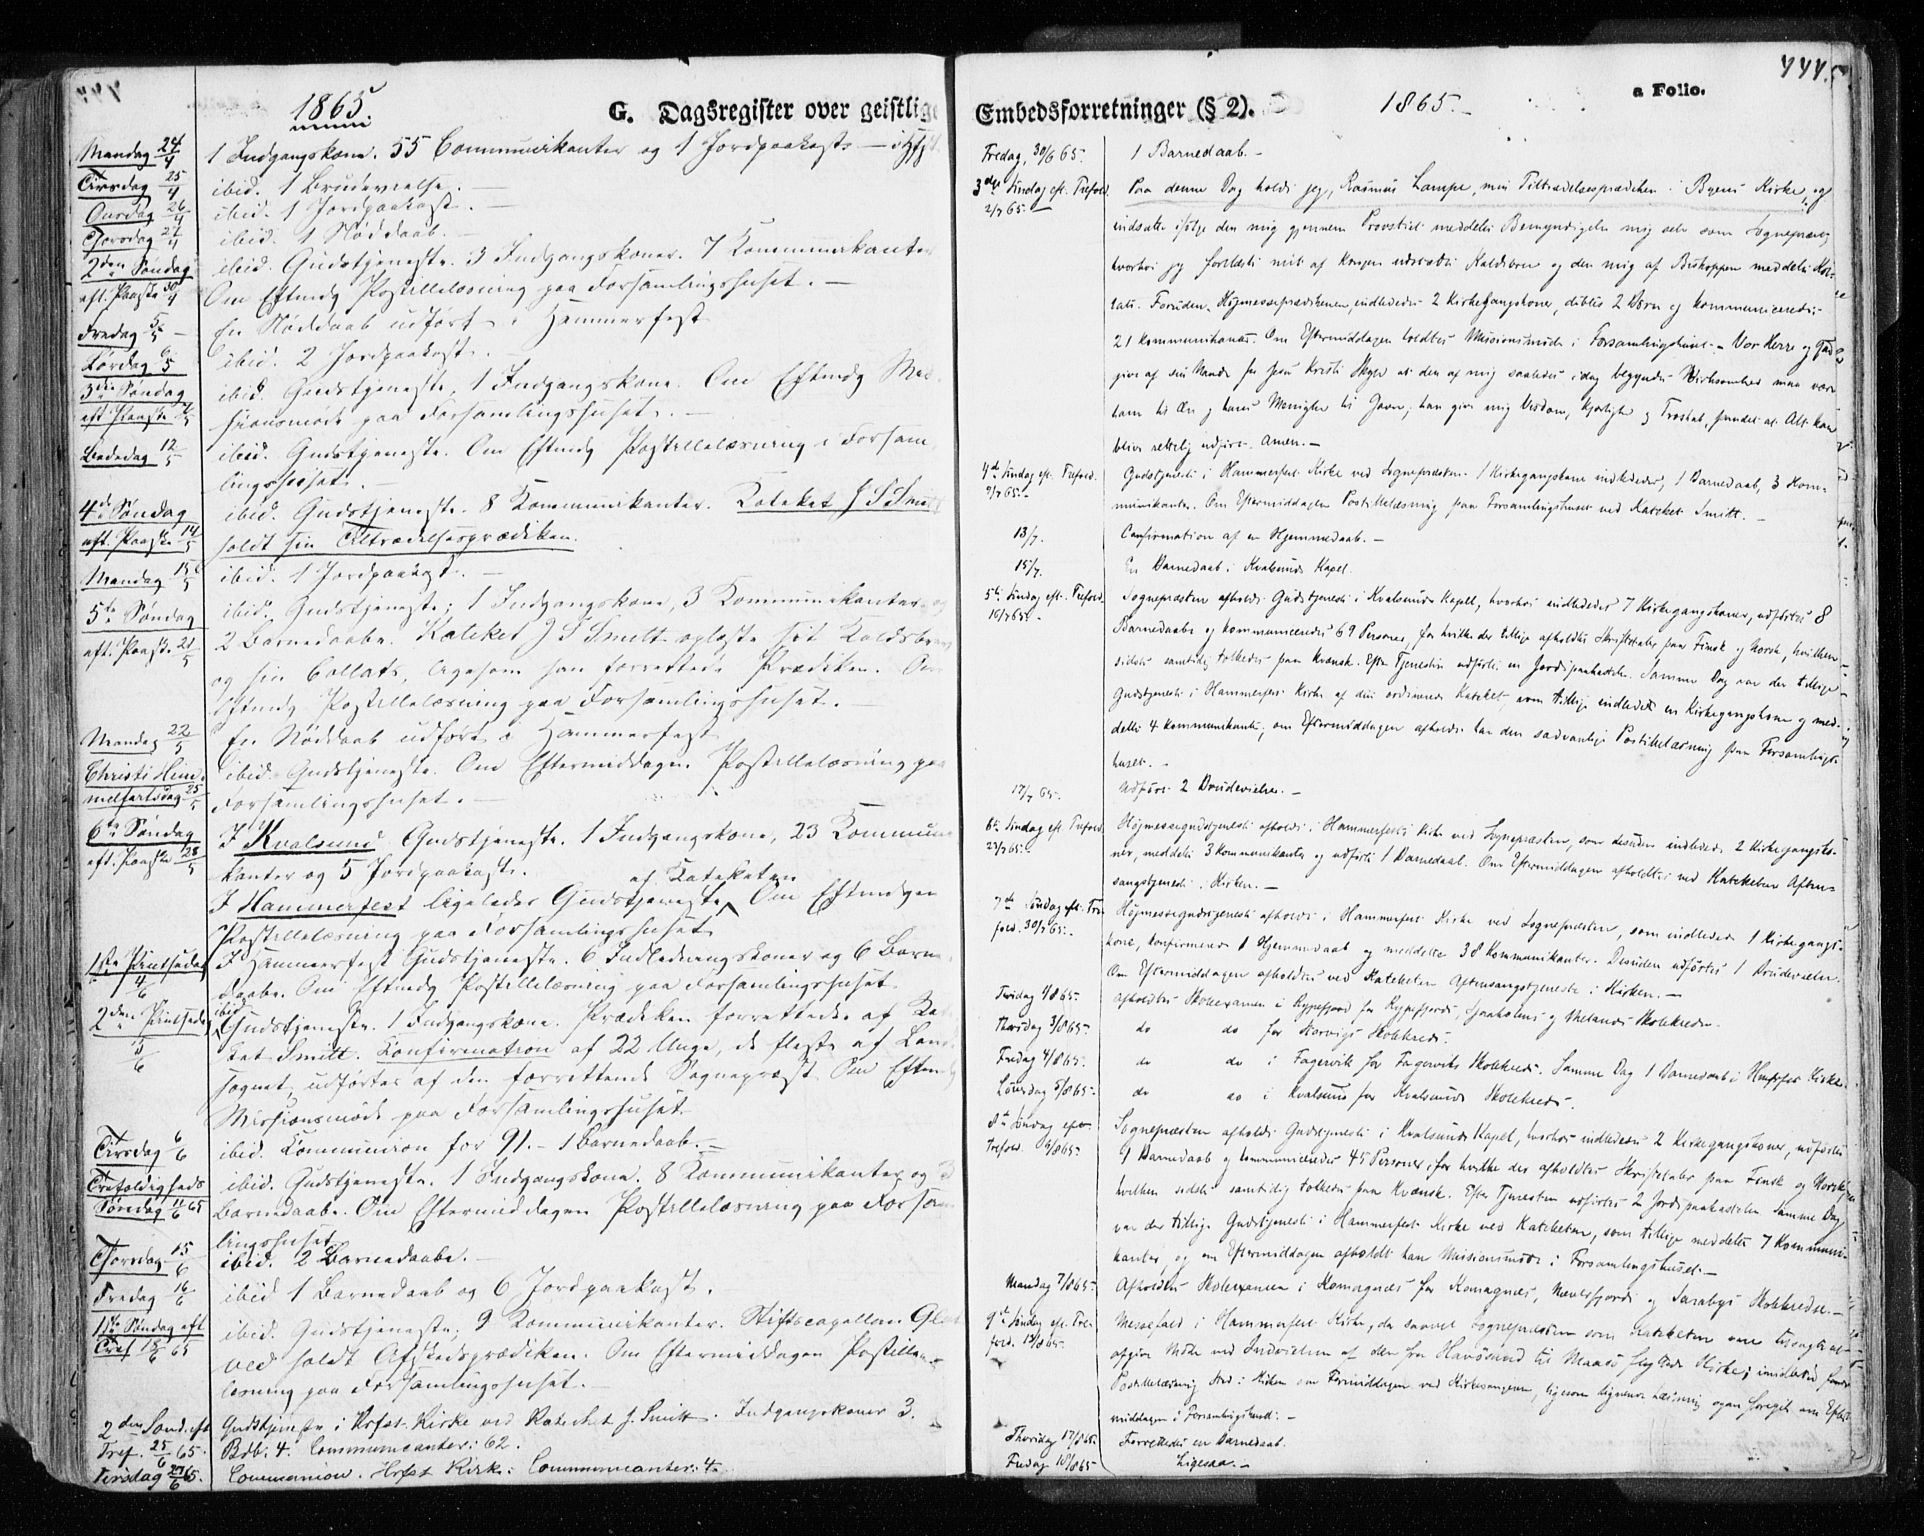 1865.
G. Dagsregister over geistlige
Mandag 24/4 1 Indgangskone. 55 Communikanter og 1 Jordpaakast. —
Tirsdag 25/4 ibid. 1 Brudevielse. —
Onsdag 26/4 ibid. 1 Jordpaakast. —
Torsdag 27/4 ibid. 1 Nøddaab. —
2den Søndag ibid. Gudstjeneste. 3 Indgangskoner. 7 Kommunikanter
eft. Paaske 30/4 Om Eftmdg Postillelæsning paa Forsamlingshuset. —
Fredag 5/5 — En Nøddaab udført i Hammerfest
Lørdag 6/5 ibid. 2 Jordpaakast. —
3die Søndag ibid. Gudstjeneste, 1 Indgangskone. Om Eftmdg Mis-
eft. Paaske 7/5 sionsmøde paa Forsamlingshuset. —
Bededag 12/5 ibid. Gudstjeneste. Om Eftmdg Postillelæsning i Forsam-
lingshuset. —
4de Søndag ibid. Gudstjeneste. 8 Kommunikanter. Kateket J S Smitt
eft. Paaske 14/5 holdt sin Tiltrædelsesprædiken.
Mandag 15/5 ibid. 1 Jordpaakast. —
5te Søndag ibid. Gudstjeneste; 1 Indgangskone, 3 Kommunikanter og
eft. Paaske 21/5 2 Barnedaabe. Kateket J S Smitt oplæste sit Kaldsbrev
og sin Collats, ligesom han forrettede Prædiken. Om
Eftmdg Postillelæsning paa Forsamlingshuset. —
Mandag 22/5 En Nøddaab udført i Hammerfest
Christi Him- ibid. Gudstjeneste. Om Eftermiddagen Postillelæsning paa
melfartsdag 25/5 Forsamlingshuset. —
6te Søndag I Kvalsund Gudstjeneste. 1 Indgangskone, 23 Kommuni-
eft. Paaske 28/5 kanter og 5 Jordpaakast.
af Kateketen
I Hammerfest ligeledes Gudstjeneste Om Eftmdgen
Postillelæsning paa Forsamlingshuset
1ste Pintsedag 4/6 I Hammerfest Gudstjeneste. 6 Indledningskoner og 6 Barne-
daabe. Om Eftmdg Postillelæsning paa Forsamlingshuset
2den Pintsedag 5/6 ibid Gudstjeneste. 1 Indgangskone. Prædiken forrettedes af Kate-
ket Smitt. Konfirmation af 22 Unge, de fleste af Land-
sognet, udførtes af den forrettende Sognepræst. Om Eftmdg
Missionsmøde paa Forsamlingshuset
Tirsdag 6/6 ibid. Communion for 91. – 1 Barnedaab. —
Trefoldigheds ibid. Gudstjeneste. 1 Indgangskone. 8 Kommunikanter og 3
Søndag 11/6 65 Barnedaabe. Om Eftermiddagen Postillelæsning paa Forsam-
lingshuset
Torsdag 15/6 ibid. 2 Barnedaabe. —
Fredag 16/6 ibid 1 Barnedaab og 6 Jordpaakast.
1ste Søndag eft ibid. Gudstjeneste, 9 Kommunikanter. Stiftscapellan
Tref 18/6 65 ved holdt Afskedsprædiken. Om Eftermiddagen Postille-
læsning paa Forsamlingshuset. —
2den Sønd. eft Gudstjeneste i Hrfst Kirke ved Katechet J. Smitt. Indgangskoner 3.
Tref. 25/6 65. Bdb: 4. Communicanter: 62.
Tirsdag 27/6 65. Communion. Hrfst Kirke: Communicanter: 4.
444.
a Folio.
Embedsforretninger (§ 2).
1865. —
Fredag, 30/6 65. 1 Barnedaab. —
3die Søndag eft. Trefold. Paa denne Dag holdt jeg, Rasmus Lampe, min Tiltrædelsesprædiken i Byens Kirke, og
2/7 65. — indsatte ifølge den mig gjennem Provstiet meddelte Bemyndigelse mig selv som Sognepræst,
hvorhos jeg forelæste mit af Kongen udstædte Kaldsbrev og den mig af Biskoppen meddelte Kol-
lats. Foruden Højmesseprædikenen, indlededes 2 Kirkegangskoner, døbtes 2 Børn og kommunicerede
21 Kommunikanter. Om Eftermiddagen holdtes Missionsmøde i Forsamlingshuset. – Vor Herre og Gud
give af sin Naade for Jesu Kristi Skyld at den af mig saaledes idag begyndte Virksomhed maa være
ham til Ære og hans Menighed til Gavn; han give mig Visdom, Kjærlighed og Troskab, saa at Alt kan
blive rettelig udført. Amen. —
4de Søndag eft. Trefold. Gudstjeneste i Hammerfest Kirke ved Sognepræsten. 1 Kirkegangskone indlededes, 1 Barnedaab, 3 Kom-
9/7 65. — munikanter. Om Eftermiddagen Postillelæsning paa Forsamlingshuset ved Kateket Smitt. —
13/7. Confirmation af en Hjemmedaab. —
15/7. En Barnedaab i Kvalsunds Kapel.
5te Søndag eft. Trefold. Sognepræsten afholdt Gudstjeneste i Kvalsunds Kapel, hvorhos indlededes 7 Kirkegangskoner, udførtes 8
16/7 65. — Barnedaabe og kommunicerede 69 Personer, for hvilke der tillige afholdtes Skriftetaler paa Finsk og Norsk, hvilken
sidste samtidig tolkedes paa Kvænsk. Efter Tjenesten udførtes en Jordpaakastelse. Samme Dag var der tillige
Gudstjeneste i Hammerfest Kirke af den ordinerede Kateket, som tillige indledede en Kirkegangskone og med-
delte 4 Kommunikanter; om Eftermiddagen afholdt han den sædvanlige Postillelæsning paa Forsamlings-
huset. —
17/7 65. Udført 2 Brudevielser. —
6te Søndag eft. Trefold. Højmessegudstjeneste afholdt i Hammerfests Kirke ved Sognepræsten, som desuden indledede 2 Kirkegangsko-
23/7 65. — ner, meddelte 3 Kommunikanter og udførte 1 Barnedaab. Om Eftermiddagen afholdtes ved Kateketen Aften-
sangstjeneste i Kirken. —
7de Søndag eft. Tre- Højmessegudstjeneste afholdt i Hammerfest Kirke ved Sognepræsten, som indledede 1 Kirkegangs-
fold. 30/7 65. — kone, konfirmerede 1 Hjemmedaab og meddelte 38 Kommunikanter. Desuden udførtes 1 Brudevielse.
Om Eftermiddagen afholdtes ved Kateketen Aftensangstjeneste i Kirken. —
afholdtes Skoleexamen i Rypefjord for Rypefjords, og Melands Skolekredse.
Thorsdag 3/8 65. do do for Korvigs Skolekreds.
Fredag 4/8 65. do do i Fagervik for Fagerviks Skolekreds. Samme Dag 1 Barnedaab i Hmfst Kirke.
Løversdag 5/8 65. do do i Kvalsund for Kvalsunds Skolekreds.
8de Søndag efter Sognepræsten afholdt Gudstjeneste i Kvalsunds Kapel, hvorhos indlededes 2 Kirkegangskoner, udførtes
Trefold. 6/8 65. 1 Barnedaab og kommunicerede 45 Personer, for hvilke der afholdtes Skriftetaler paa Finsk og Norsk,
hvilken sidste samtidig tolkedes paa Kvænsk. Efter Tjenesten udførtes 2 Jordpaakastelser. Samme Dag
var der tillige Gudstjeneste i Hammerfest Kirke ved Kateketen, som tillige meddelte 7 Kommuni-
kanter, og om Eftermiddagen afholdt han Missionsmøde i Forsamlingshuset. —
Mandag 7/8 65. Afholdtes Skoleexamen i Komagnæs for Komagnæs, og Sarabys Skolekredse. —
9de Søndag eft. Tre- Messefald i Hammerfest Kirke, da saavel Sognepræsten som Kateketen vare
fold. 13/8 65. ved Indvielsen af den fra Havøsund til Maasø flyttede Kirke; imidlertid fandt
Postillelæsning Sted i Kirken om Formiddagen ved Kirkesangeren, ligesom Læsning ogsaa foregik om Efter-
middagen i Forsamlingshuset. —
Thorsdag 17/8 65. Forrettedes en Barnedaab.
Fredag 18/8 65 Ligesaa. —